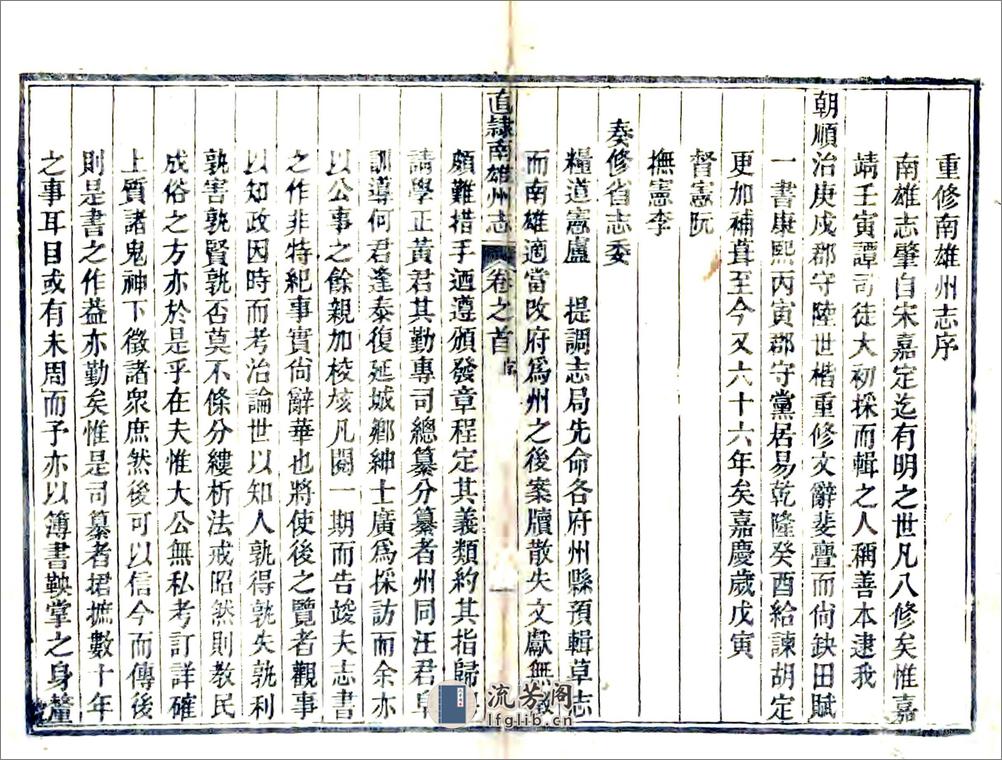 重修南雄州志序
南雄志肇自宋嘉定迄有明之世凡八修矣惟嘉
靖壬寅譚司徒大初採而輯之人稱善本逮我
朝順治庚戌郡守陸世楷重修文辭斐亹而尙缺田賦
一書康熙丙寅郡守黨居易乾隆癸酉給諫胡定
更加補葺至今又六十六年矣嘉慶歲戊寅
督憲阮
撫憲李
奏修省志委
糧道憲盧 提調志局先命各府州縣預輯草志
而南雄適當改府爲州之後案牘散失文獻無徵
直隸南雄州志 卷之首 序 一
頗難措手迺遵頒發章程定其義類約其指歸
請學正黃君其勤專司總纂分纂者州同汪君
訓導何君逢泰復延城鄉紳士廣爲採訪而余亦
以公事之餘親加校核凡閱一期而告竣夫志書
之作非特紀事實尙辭華也將使後之覽者觀事
以知政因時而考治論世以知人孰得孰失孰利
孰害孰賢孰否莫不條分縷析法戒昭然則教民
成俗之方亦於是乎在夫惟大公無私考訂詳確
上質諸鬼神下徵諸衆庶然後可以信今而傳後
則是書之作益亦勤矣惟是司纂者捃摭數十年
之事耳目或有未周而予亦以簿書鞅掌之身釐
流芳阁
lfglib.cn